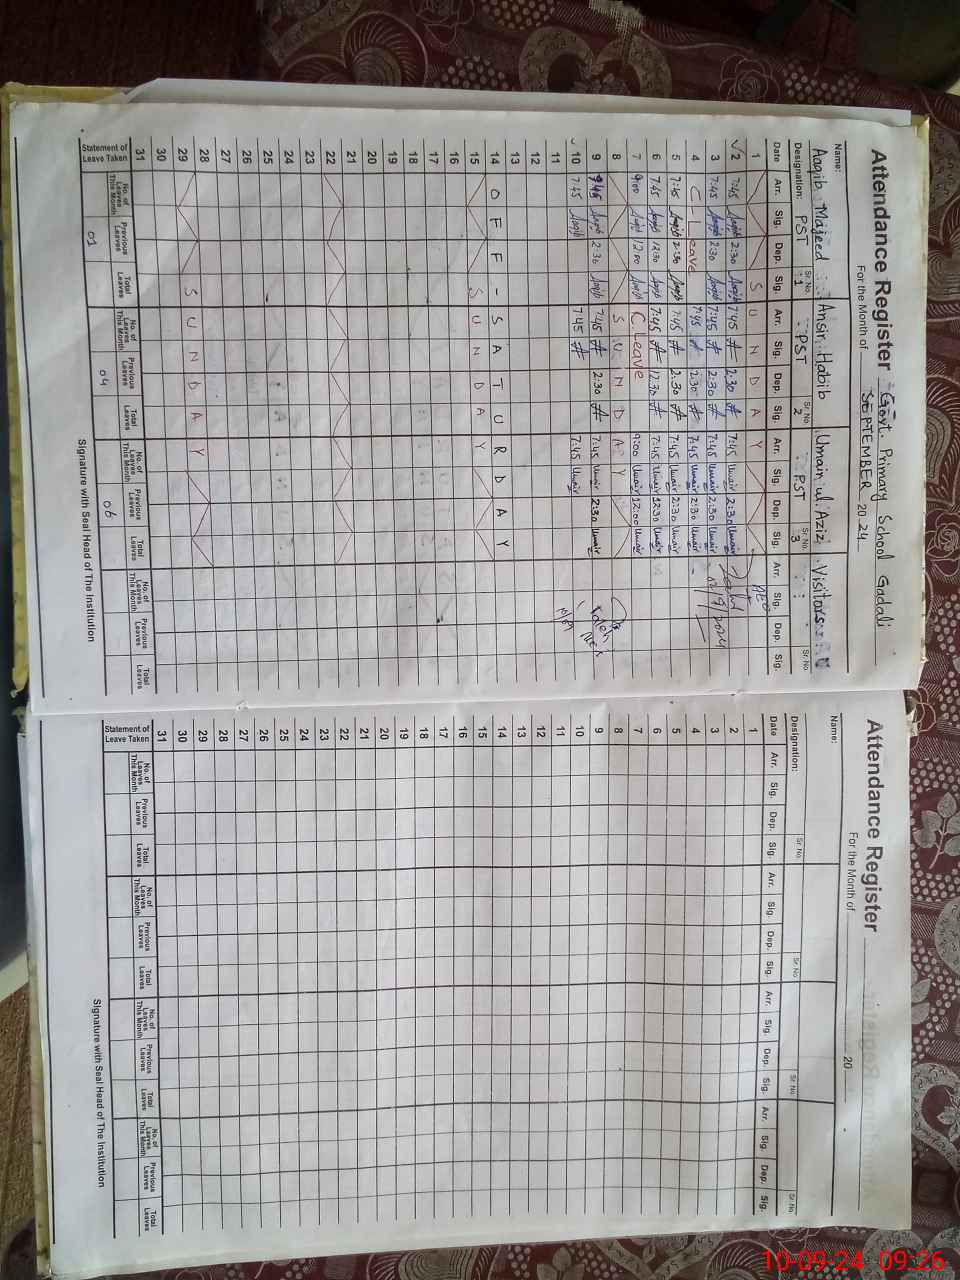 Attendance Register Govt. Primary School Gadali
For the Month of SEPTEMBER 20 24
Name: Aaqib Majeed Ansir Habib Umair ul Aziz Visitors
Designation: PST Sr No 1 PST Sr No 2 PST Sr No. 3 Sr No
Date Arr. Sig. Dep. Sig. Arr. Sig. Dep. Sig. Arr. Sig. Dep. Sig. Arr. Sig. Dep. Sig.
1 S U N D A Y AEO
2 7:45 Aaqib 2:30 Aaqib 7:45 2:30 7:45 Umair 2:30 Umair
3 7:45 Aaqib 2:30 Aaqib 7:45 2:30 7:45 Umair 2:30 Umair 02/9/2024
4 C Leave 7:45 2:30 7:45 Umair 2:30 Umair
5 7:45 Aaqib 2:30 Aaqib 7:45 2:30 7:45 Umair 2:30 Umair
6 7:45 Aaqib 12:30 Aaqib 7:45 12:30 7:45 Umair 12:30 Umair
7 9:00 Aaqib 12:00 Aaqib C. Leave 9:00 Umair 12:00 Umair
8 S U N D A Y
9 7:45 Aaqib 2:30 Aaqib 7:45 2:30 7:45 Umair 2:30 Umair
10 7:45 Aaqib 7:45 7:45 Umair
11
12
13
14 O F F - S A T U R D A Y
15 S U N D A Y
16
17
18
19
20
21
22
23
24
25
26
27
28
29 S U N D A Y
30
31
Statement of Leave Taken No. of Leaves This Month Previous Leaves Total Leaves No. of Leaves This Month Previous Leaves Total Leaves No. of Leaves This Month Previous Leaves Total Leaves No. of Leaves This Month Previous Leaves Total Leaves
01 04 06
Signature with Seal Head of The Institution
Attendance Register
For the Month of 20
Name:
Designation: Sr No Sr No Sr No Sr No
Date Arr. Sig. Dep. Sig. Arr. Sig. Dep. Sig. Arr. Sig. Dep. Sig. Arr. Sig. Dep. Sig.
1
2
3
4
5
6
7
8
9
10
11
12
13
14
15
16
17
18
19
20
21
22
23
24
25
26
27
28
29
30
31
Statement of Leave Taken No. of Leaves This Month Previous Leaves Total Leaves No. of Leaves This Month Previous Leaves Total Leaves No. of Leaves This Month Previous Leaves Total Leaves No. of Leaves This Month Previous Leaves Total Leaves
Signature with Seal Head of The Institution
10-09-24 09:26